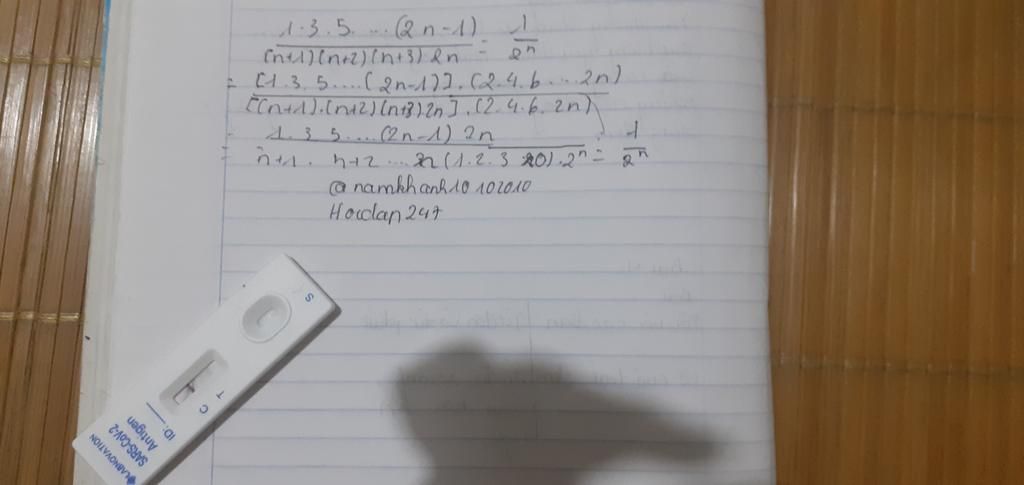 1.3.5....(2n-1) / (n+1)(n+2)(n+3)2n = 1/2ⁿ
= [1.3.5....(2n-1)].(2.4.6....2n) / [(n+1).(n+2)(n+3).2n].(2.4.6.2n)
= 1.3.5....(2n-1)2n / n+1. n+2 ... 2n(1.2.3 20).2ⁿ = 1/2ⁿ
@namkhanh10102010
Hocdap247
S
T
C
ID:
Antigen
SARS-CoV-2
LABNOVATION